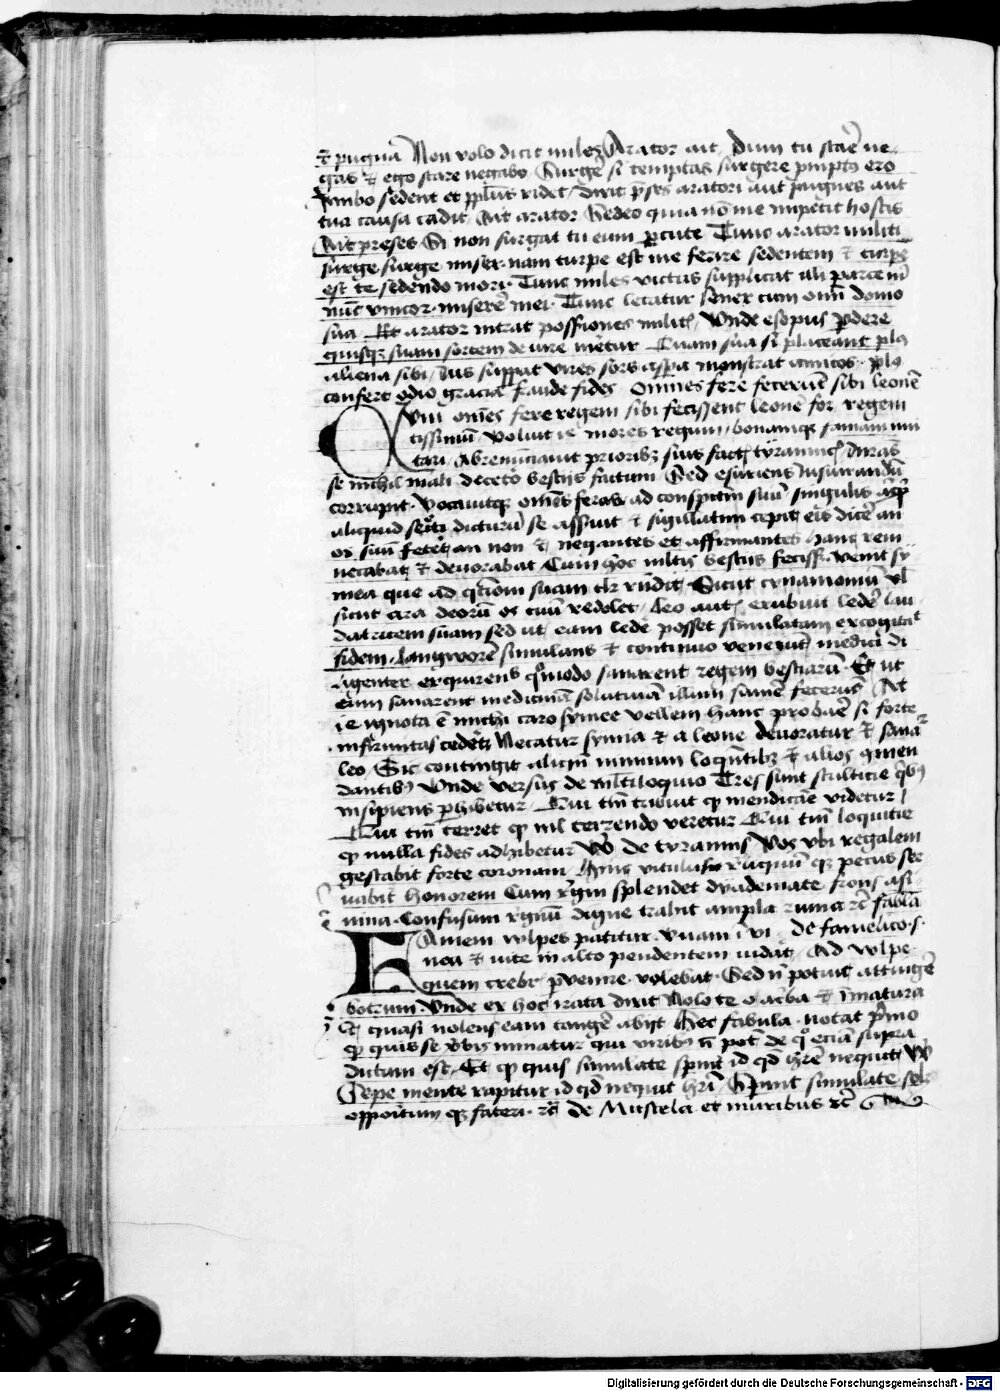 et pugna Non volo dicit miles Arator ait Dum tu stare ne
gas et ego stare negabo Surge si temptas surgere promptus ero
Ambo sedent et populus ridet dixit preses aratori aut pugnes aut
tua causa cadit Ait arator Sedeo quia non me impetit hostis
Ait preses Si non surgat tu eum percute Tunc arator militi
surge surge miser nam turpe est me ferire sedentem et turpe
est te sedendo mori Tunc miles victus supplicat illi parce mihi
nunc vincor miserere mei Tunc letatur senex cum omni domo
sua Et arator intrat possessiones militis Unde esopus perdere
quisque suam sortem de iure meretur Cuam sua si placeant plus
aliena sibi vires sors aspera monstrat amicos plus
confert odio gracia fraude fides Omnes fere fecerunt sibi leonem
Cum omnes fere regem sibi fecissent leonem for regem
tissimum voluit is mores regum bonamque famam imi
tari Abrenunciavit prioribus suis factis tyrannicis Jurans
se nichil mali decetero bestiis facturum Sed esuriens iusiurandum
corrupit Vocavitque omnes feras ad conspectum suum singulis
aliquid secreti dicturum se asseruit et sigillatim cepit eis dicere an
os suum feteret an non et negantes et affirmantes hanc rem
necabat et devorabat Cum hoc multis bestiis fecisset venit sy
mea que ad questionem suam taliter respondit Sicut cynamomum vel
sicut ara deorum os tuum redolet Leo autem erubuit ledere lau
datricem suam sed ut eam ledere posset simulatam excogitat
fidem langworem simulans et continuo venerunt medici di
ligenter exquirens quomodo sanarent regem bestiarum Et ut
eum sanarent medicinam solutivam illum sumere fecerunt At
is ignota est michi caro symee vellem hanc probare si forte
infirmitas cederet Necatur symia et a leone devoratur et sanatur
leo Sic contingit aliquando nimium loquentibus et alios commen
dantibus Unde versus de multiloquio Tres sunt stulticie quibus
insipiens perhibetur Qui tantum tribuit quod mendicare videtur
Qui tantum terret quod nil terrendo veretur Qui tantum loquitur
quod nulla fides adhibetur Versus de tyrannis Vos ubi regalem
gestabit forte coronam vitulus reliquumque pecus ser
vabit honorem Cum regum splendet dyademate frons asi
nina Confusum regnum digne trahit ampla ruina etc fabula
Famem vulpes patitur uvam in vi de famelico s
nea et vite in alto pendentem vidit Ad vulpe
quem crebro pervenire volebat Sed non potuit attingere
botrum Unde ex hoc irata dixit Nolo te o acerba et inmatura
Et quasi nolens eam tangere abiit Hec fabula notat primo
quod quis se verbis minatur qui viribus non potest de quo eciam supra
dictum est Et quod quis simulate spernit id quod habere nequit Versus
Sepe mente rapitur id quod nequit haberi Spernit simulate solet
oppositumque fateri etc De Mustela et muribus etc
Digitalisierung gefördert durch die Deutsche Forschungsgemeinschaft - DFG